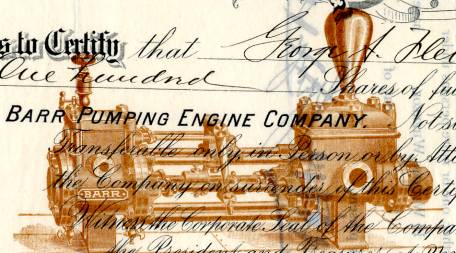 s to Certify that George A. Flei
One hundred Shares of fu
BARR PUMPING ENGINE COMPANY. Not su
Transferable only in Person or by Atto
the Company on surrender of this Certif
BARR
Witness the Corporate Seal of the Compa
the President and